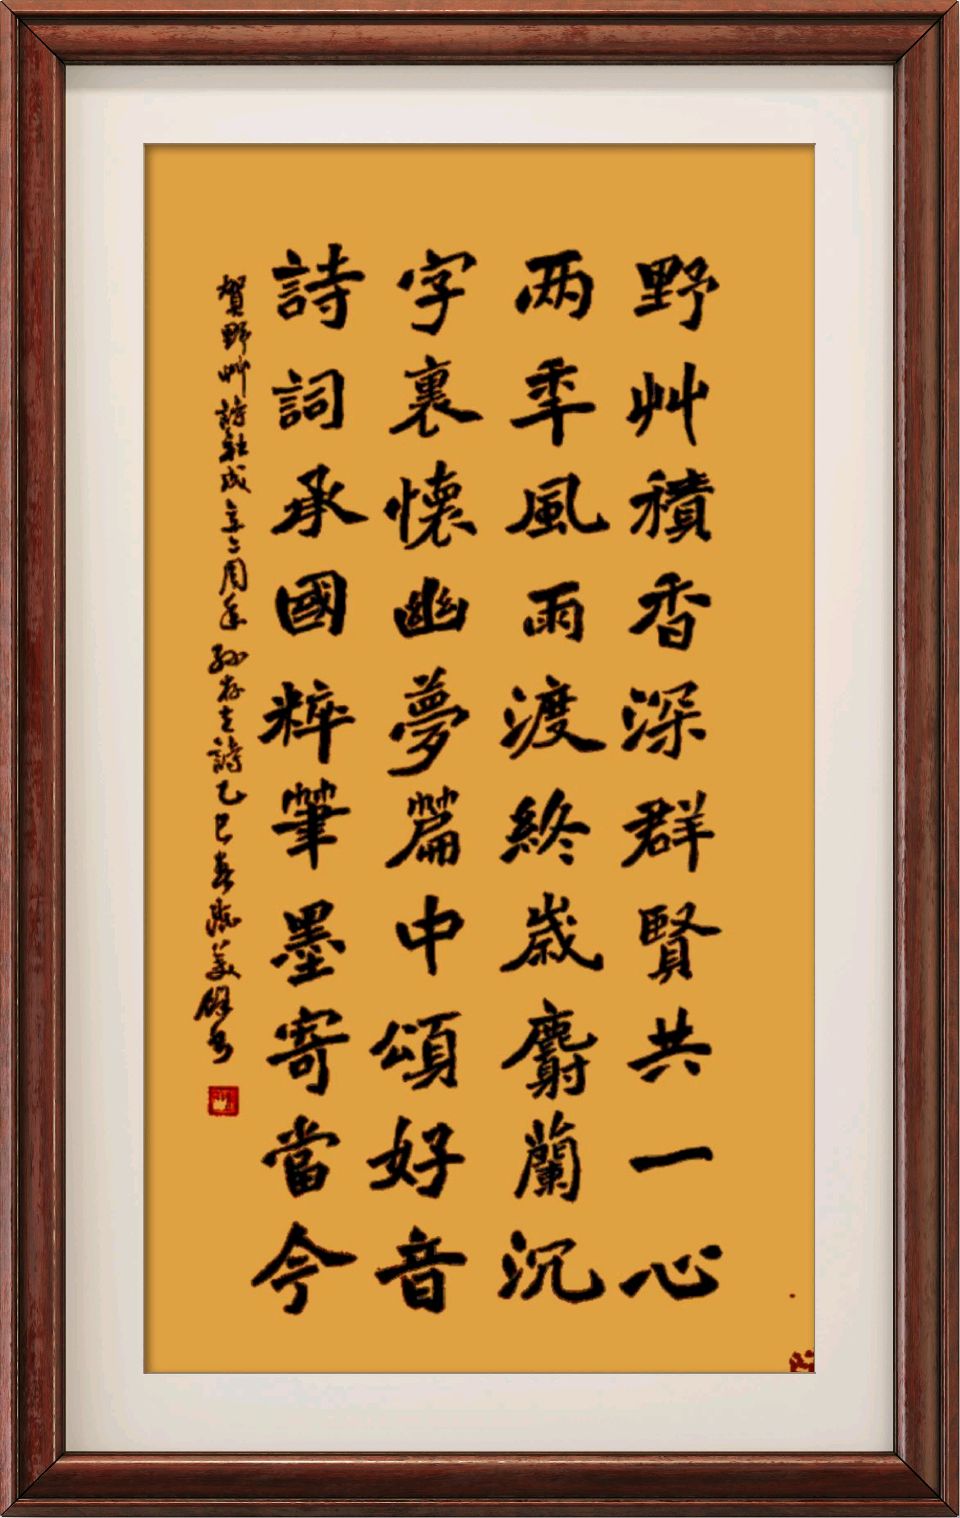 野艸積香深群賢共一心
两年風雨渡終歲麝蘭沉
字裏懷幽夢篇中頌好音
詩詞承國粹筆墨寄當今
賀野艸詩社成立二周年 孙存 詩 乙巳春 书